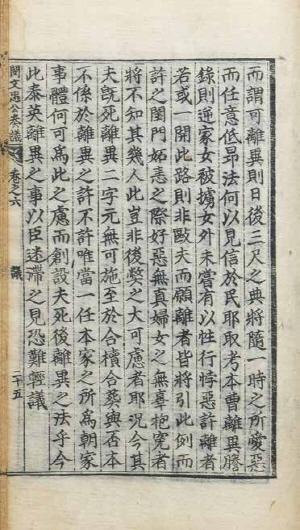 而謂可離異則日後三尺之典將隨一時之所愛惡
而任意低昂法何以見信於民耶取考本曹離異謄
錄則逆家女被擄女外未嘗有以性行悖惡許離者
若或一開此路則非毆夫而願離者皆將引此例而
許之閨門妬恚之際好惡無眞婦女之無辜抱寃者
將不知其幾人此豈非後弊之大可慮者耶況今其
夫旣死離異二字元無可施至於合櫝合葬與否本
不係於離異之許不許唯當一任本家之所爲朝家
事體何可爲此之慮而創設夫死後離異之法乎今
此泰英離異之事以臣迷滯之見恐難輕議
文 公奏議
卷之六
議
二十五